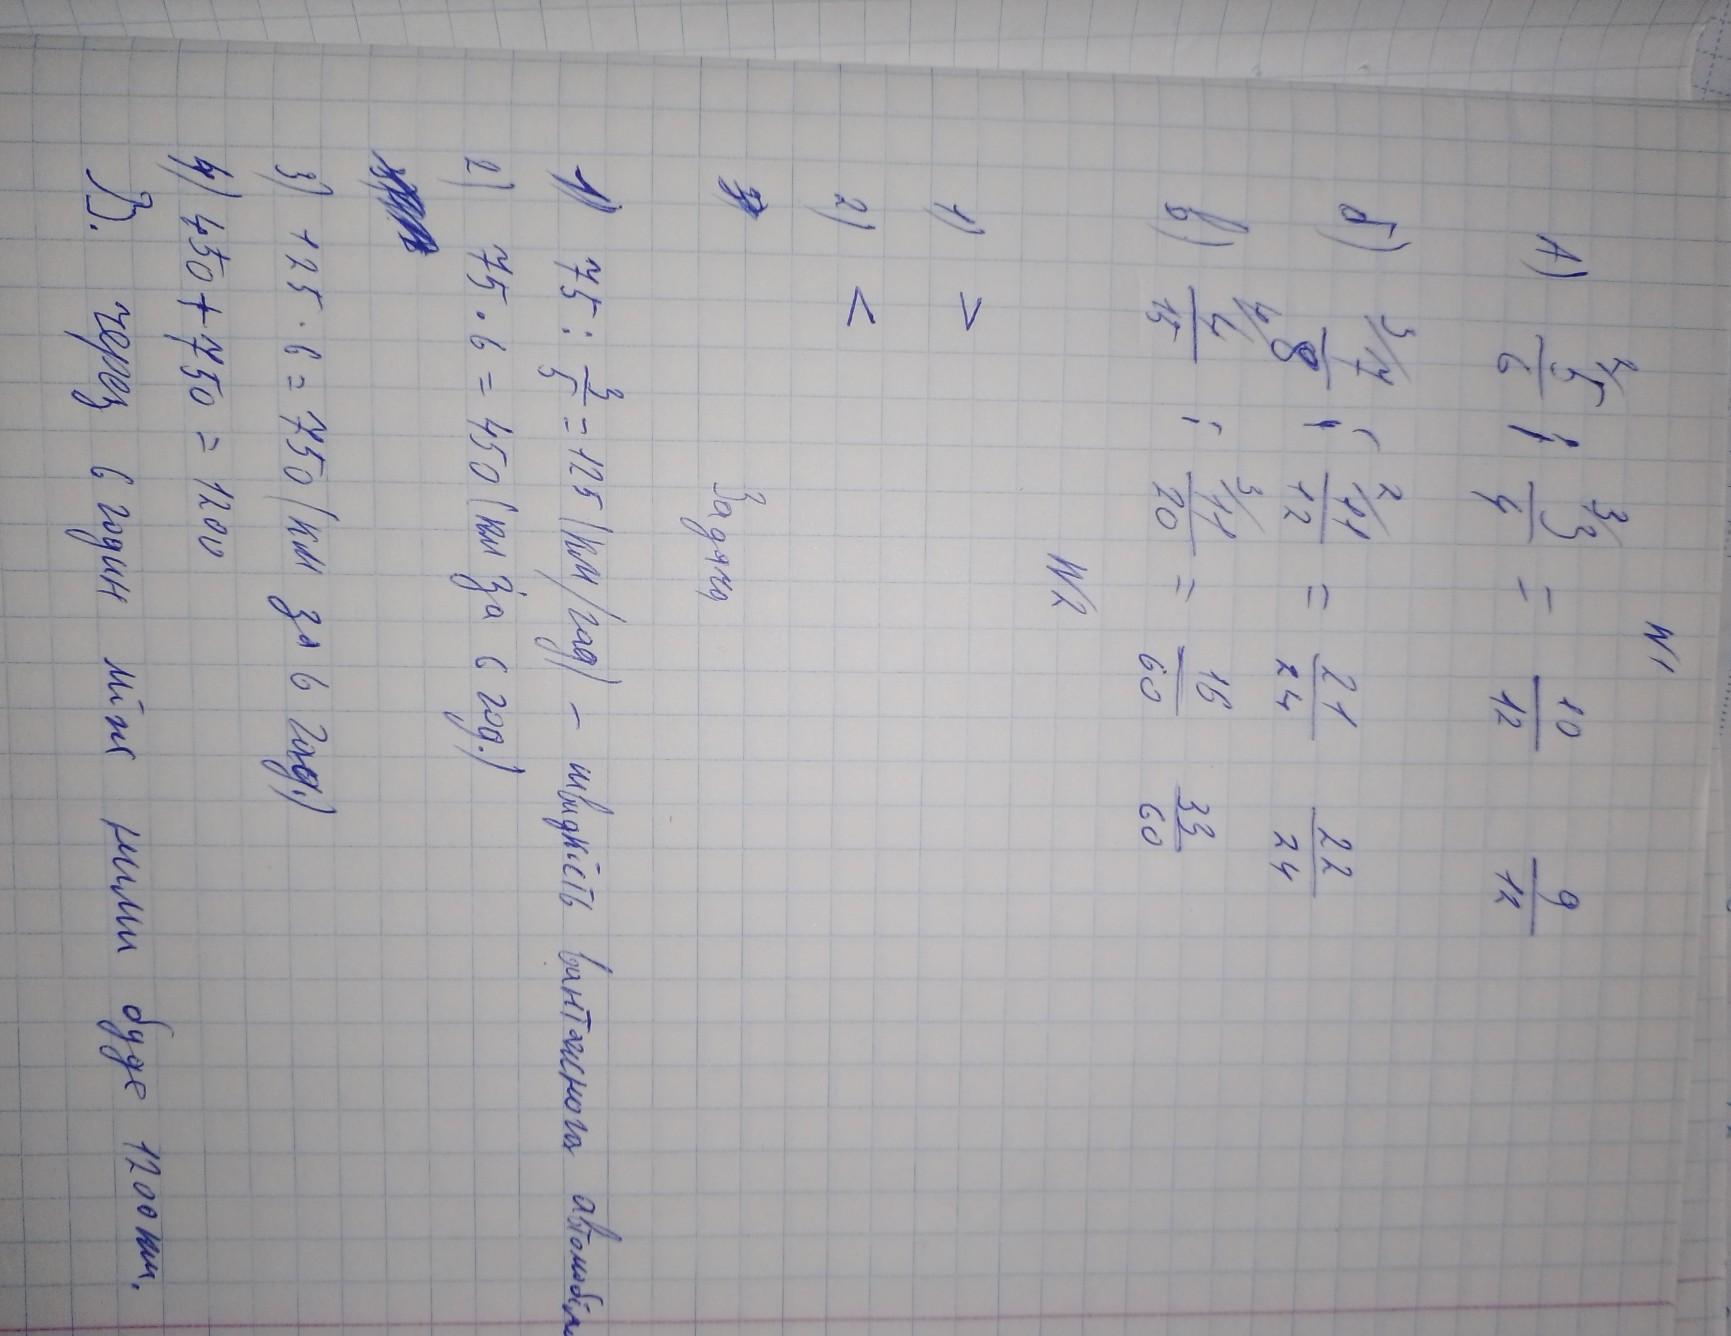 №1
А) 2/ 5/6 ; 3/ 3/4 = 10/12 9/12
б) 3/ 7/8 ; 2/ 11/12 = 21/24 22/24
в) 4/ 4/15 ; 3/ 11/20 = 16/60 33/60
№2
1) >
2) <
Задача
1) 75 : 3/5 = 125 (км/год) - швидкість вантажного автомобіля
2) 75 · 6 = 450 (км за 6 год.)
3) 125 · 6 = 750 (км за 6 год.)
4) 450 + 750 = 1200
В. через 6 годин між ними буде 1200 км.